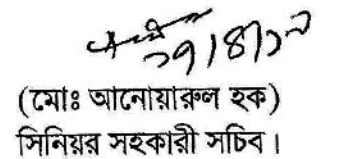 ২৭/৪/১৭
(মোঃ আনোয়ারুল হক)
সিনিয়র সহকারী সচিব।